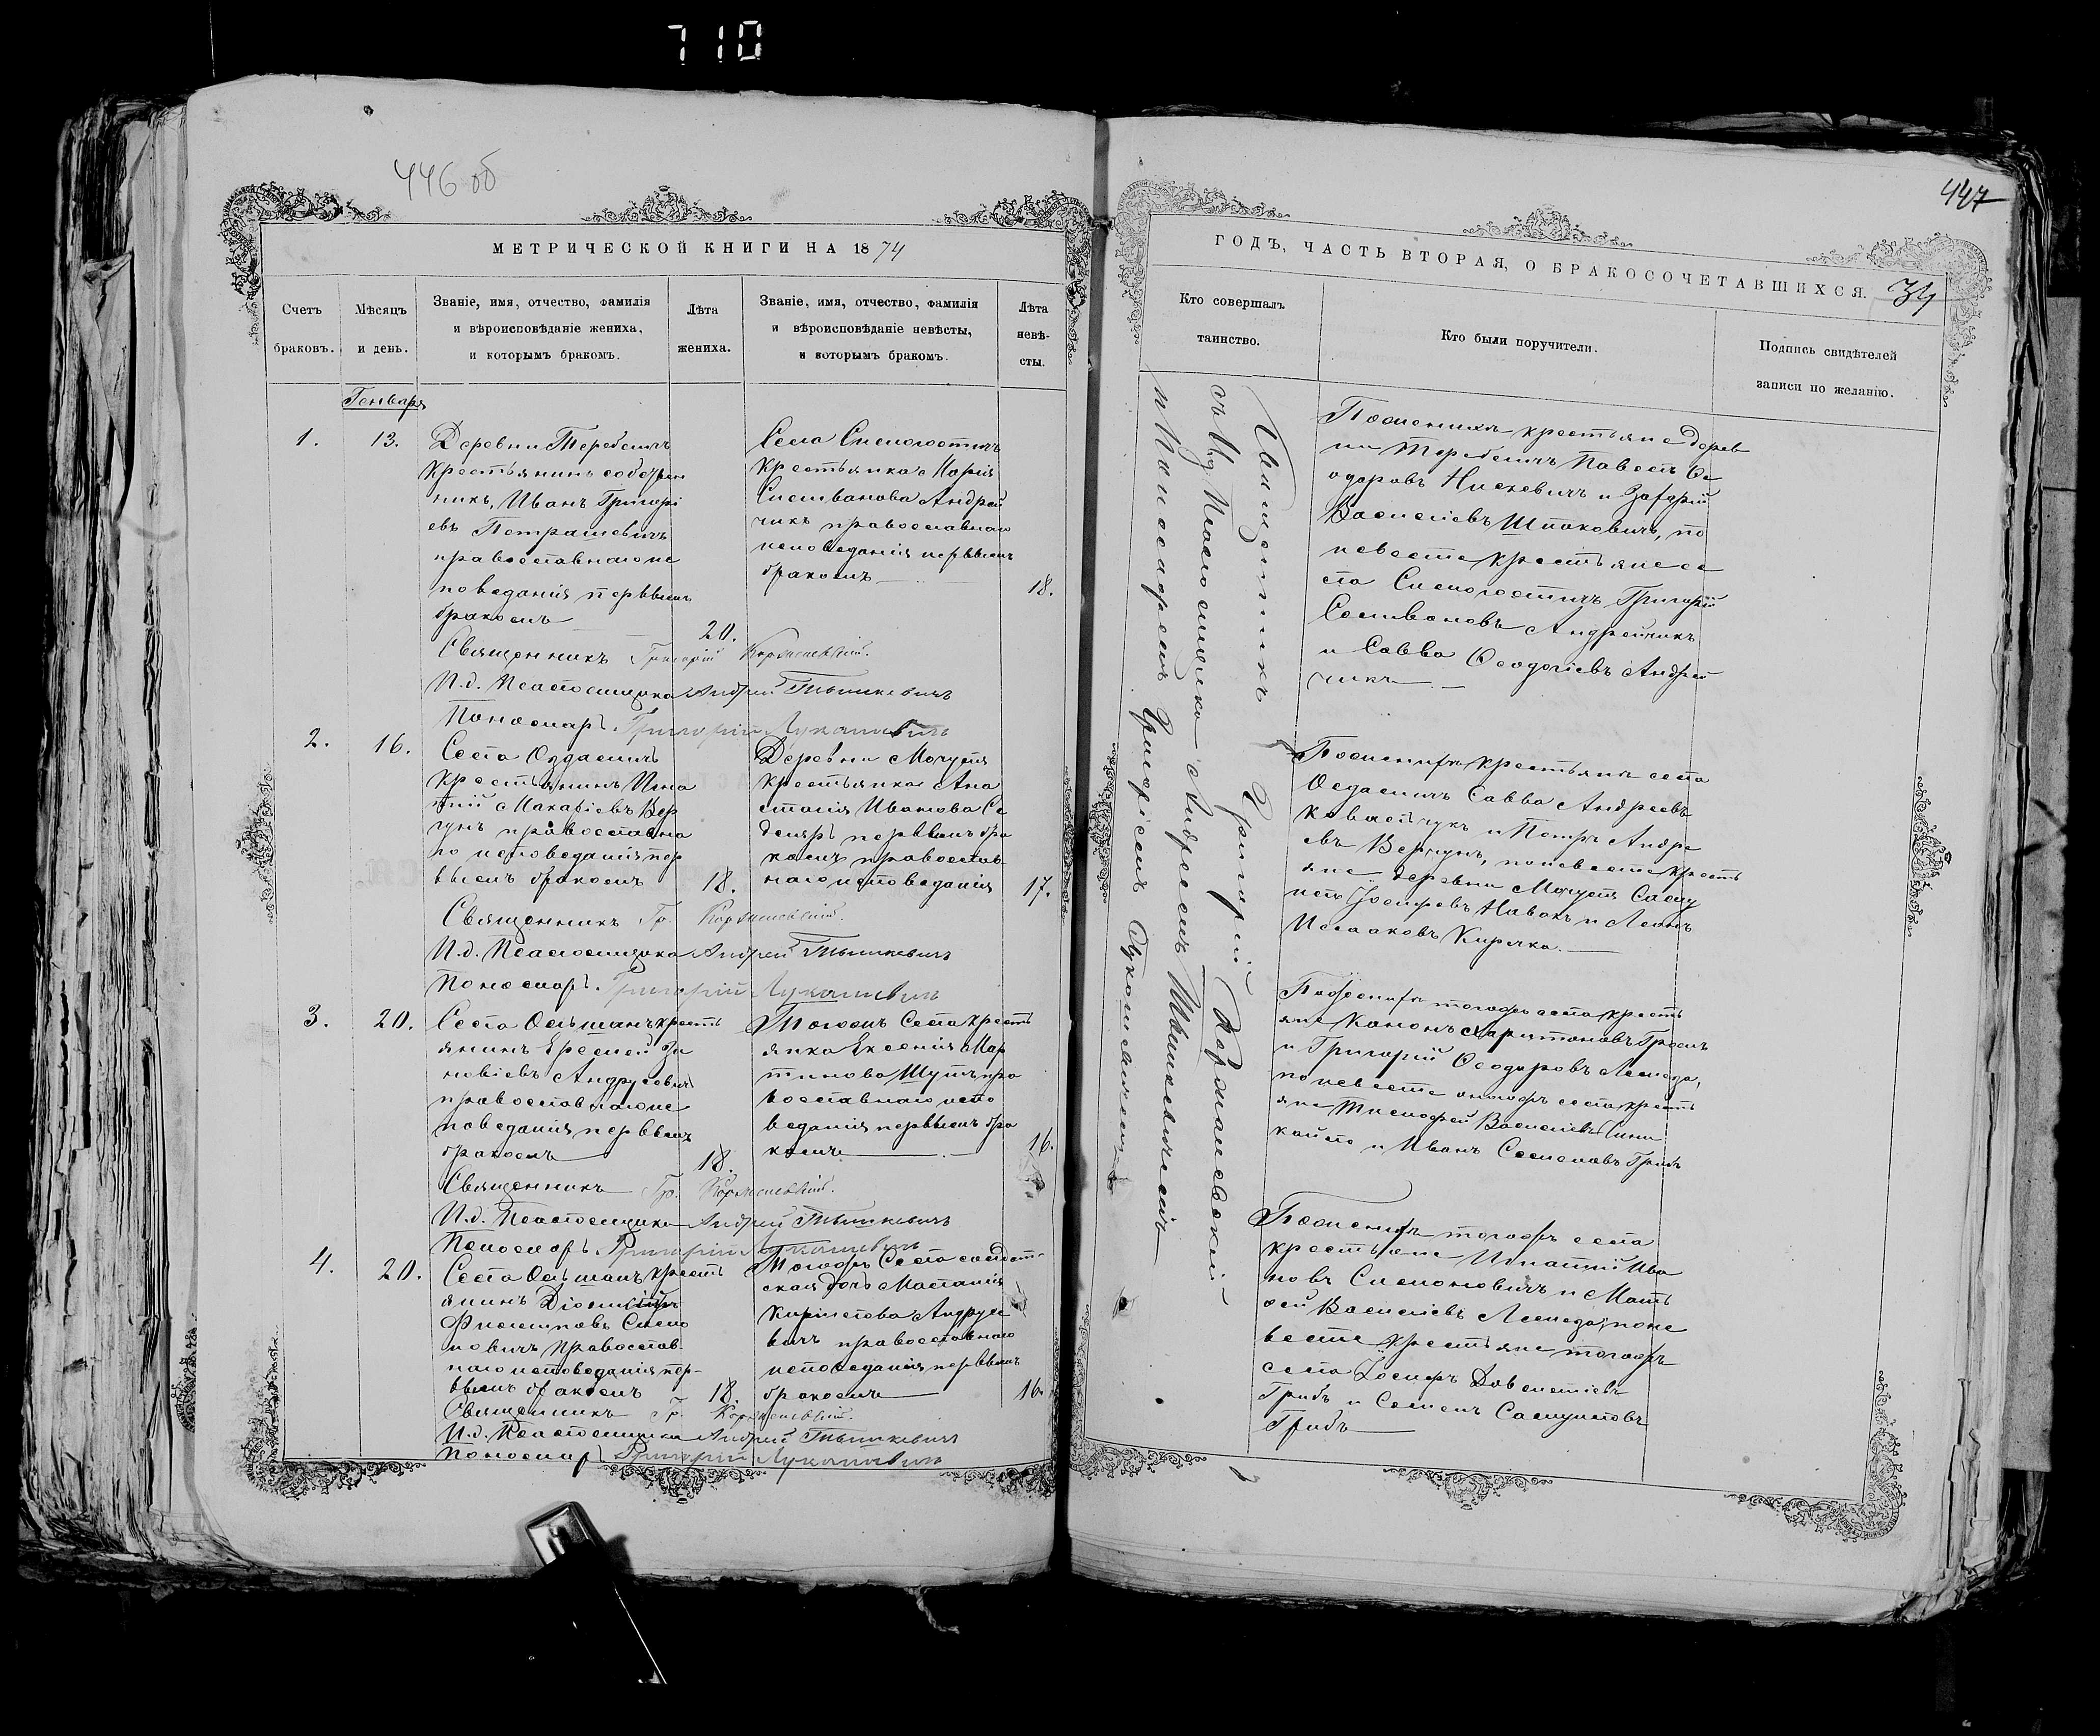 710
446 об
МЕТРИЧЕСКОЙ КНИГИ НА 1874
Счетъ
браковъ.
Мѣсяцъ
и день.
Званіе, имя, отчество, фамилія
и вѣроисповѣданіе жениха,
и которымъ бракомъ.
Лѣта
жениха.
Званіе, имя, отчество, фамилія
и вѣроисповѣданіе невѣсты,
и которымъ бракомъ.
Лѣта
невѣ-
сты.
Генваря
1.
13.
Деревни Теребличъ
крестьянинъ собствен
никъ, Иванъ Григорі
евъ Петрашевичъ
православнаго ис
поведанія первымъ
бракомъ
20.
Села
крестьянка Марія
Андрей
чикъ православнаго
исповеданія первымъ
бракомъ
18.
Священникъ Григорій
И.д. Псаломщика Андрей Тышкевичъ
Пономарь Григорій Лукашевичъ
2.
16.
Села
крестьянинъ Игна
тій Макаріевъ Вер
гунъ православна
го исповеданія пер
вымъ бракомъ
18.
Деревни
крестьянка Ана
стасія Иванова Се
первымъ бра
комъ православ
наго исповеданія
17.
Священникъ Гр.
И.д. Псаломщика Андрей Тышкевичъ
Пономарь Григорій Лукашевичъ
3.
20.
Села Ольшанъ кресть
янинъ Еремей Зи
новіевъ Андрусевичъ
православнаго ис
поведанія первымъ
бракомъ
18.
Тогожъ Села кресть
янка Ксенія Мар
тинова пра
вославнаго испо
веданія первымъ бра
комъ
16.
Священникъ Гр.
И.д. Псаломщика Андрей Тышкевичъ
Пономарь Григорій Лукашевичъ
4.
20.
Села Ольшанъ кресть
янинъ
Филиповъ Симо
новичъ православ
наго исповеданія пер-
вымъ бракомъ
18.
Тогожъ Села солдат-
ская дочь
Кирилова Андрусе
вичъ православнаго
исповеданія первымъ
бракомъ
16.
Священникъ Гр.
И.д. Псаломщика Андрей Тышкевичъ
Пономарь Григорій Лукашевичъ
447
ГОДЪ, ЧАСТЬ ВТОРАЯ, О БРАКОСОЧЕТАВШИХСЯ.
34
Кто совершалъ
таинство.
Кто были поручители.
Подпись свидѣтелей
записи по желанію.
Священникъ Григорій
съ И.д. Псаломщика Андреемъ Тышкевичемъ
и Пономаремъ Григоріемъ Лукашевичемъ
По женихѣ крестьяне дерев
ни Теребличъ Павелъ Ѳе
одоровъ и Захарій
Василіевъ Шпаковичъ, по
невесте крестьяне се
ла Григорій
Андрейчикъ
и Савва Ѳеодосіевъ Андрей
чикъ
По женихѣ крестьяне села
Савва Андреевъ
Ковальчукъ и Петръ Андре
евъ Вергунъ, по невесте кресть
яне деревни Саму
илъ Іосифовъ и Леонъ
Исааковъ Кирчка.
По женихѣ тогожъ села кресть
яне Кононъ Харитоновъ
и Григорій Ѳеодоровъ
по невесте онагожъ села кресть
яне Тимофей Василіевъ
и Иванъ Семеновъ Грибъ
По женихѣ тогожъ села
крестьяне Игнатій Ива
новъ Симоновичъ и Мат
ѳей Василіевъ по не
весте крестьяне тогожъ
села Іосифъ
Грибъ и Семенъ Самуиловъ
Грибъ